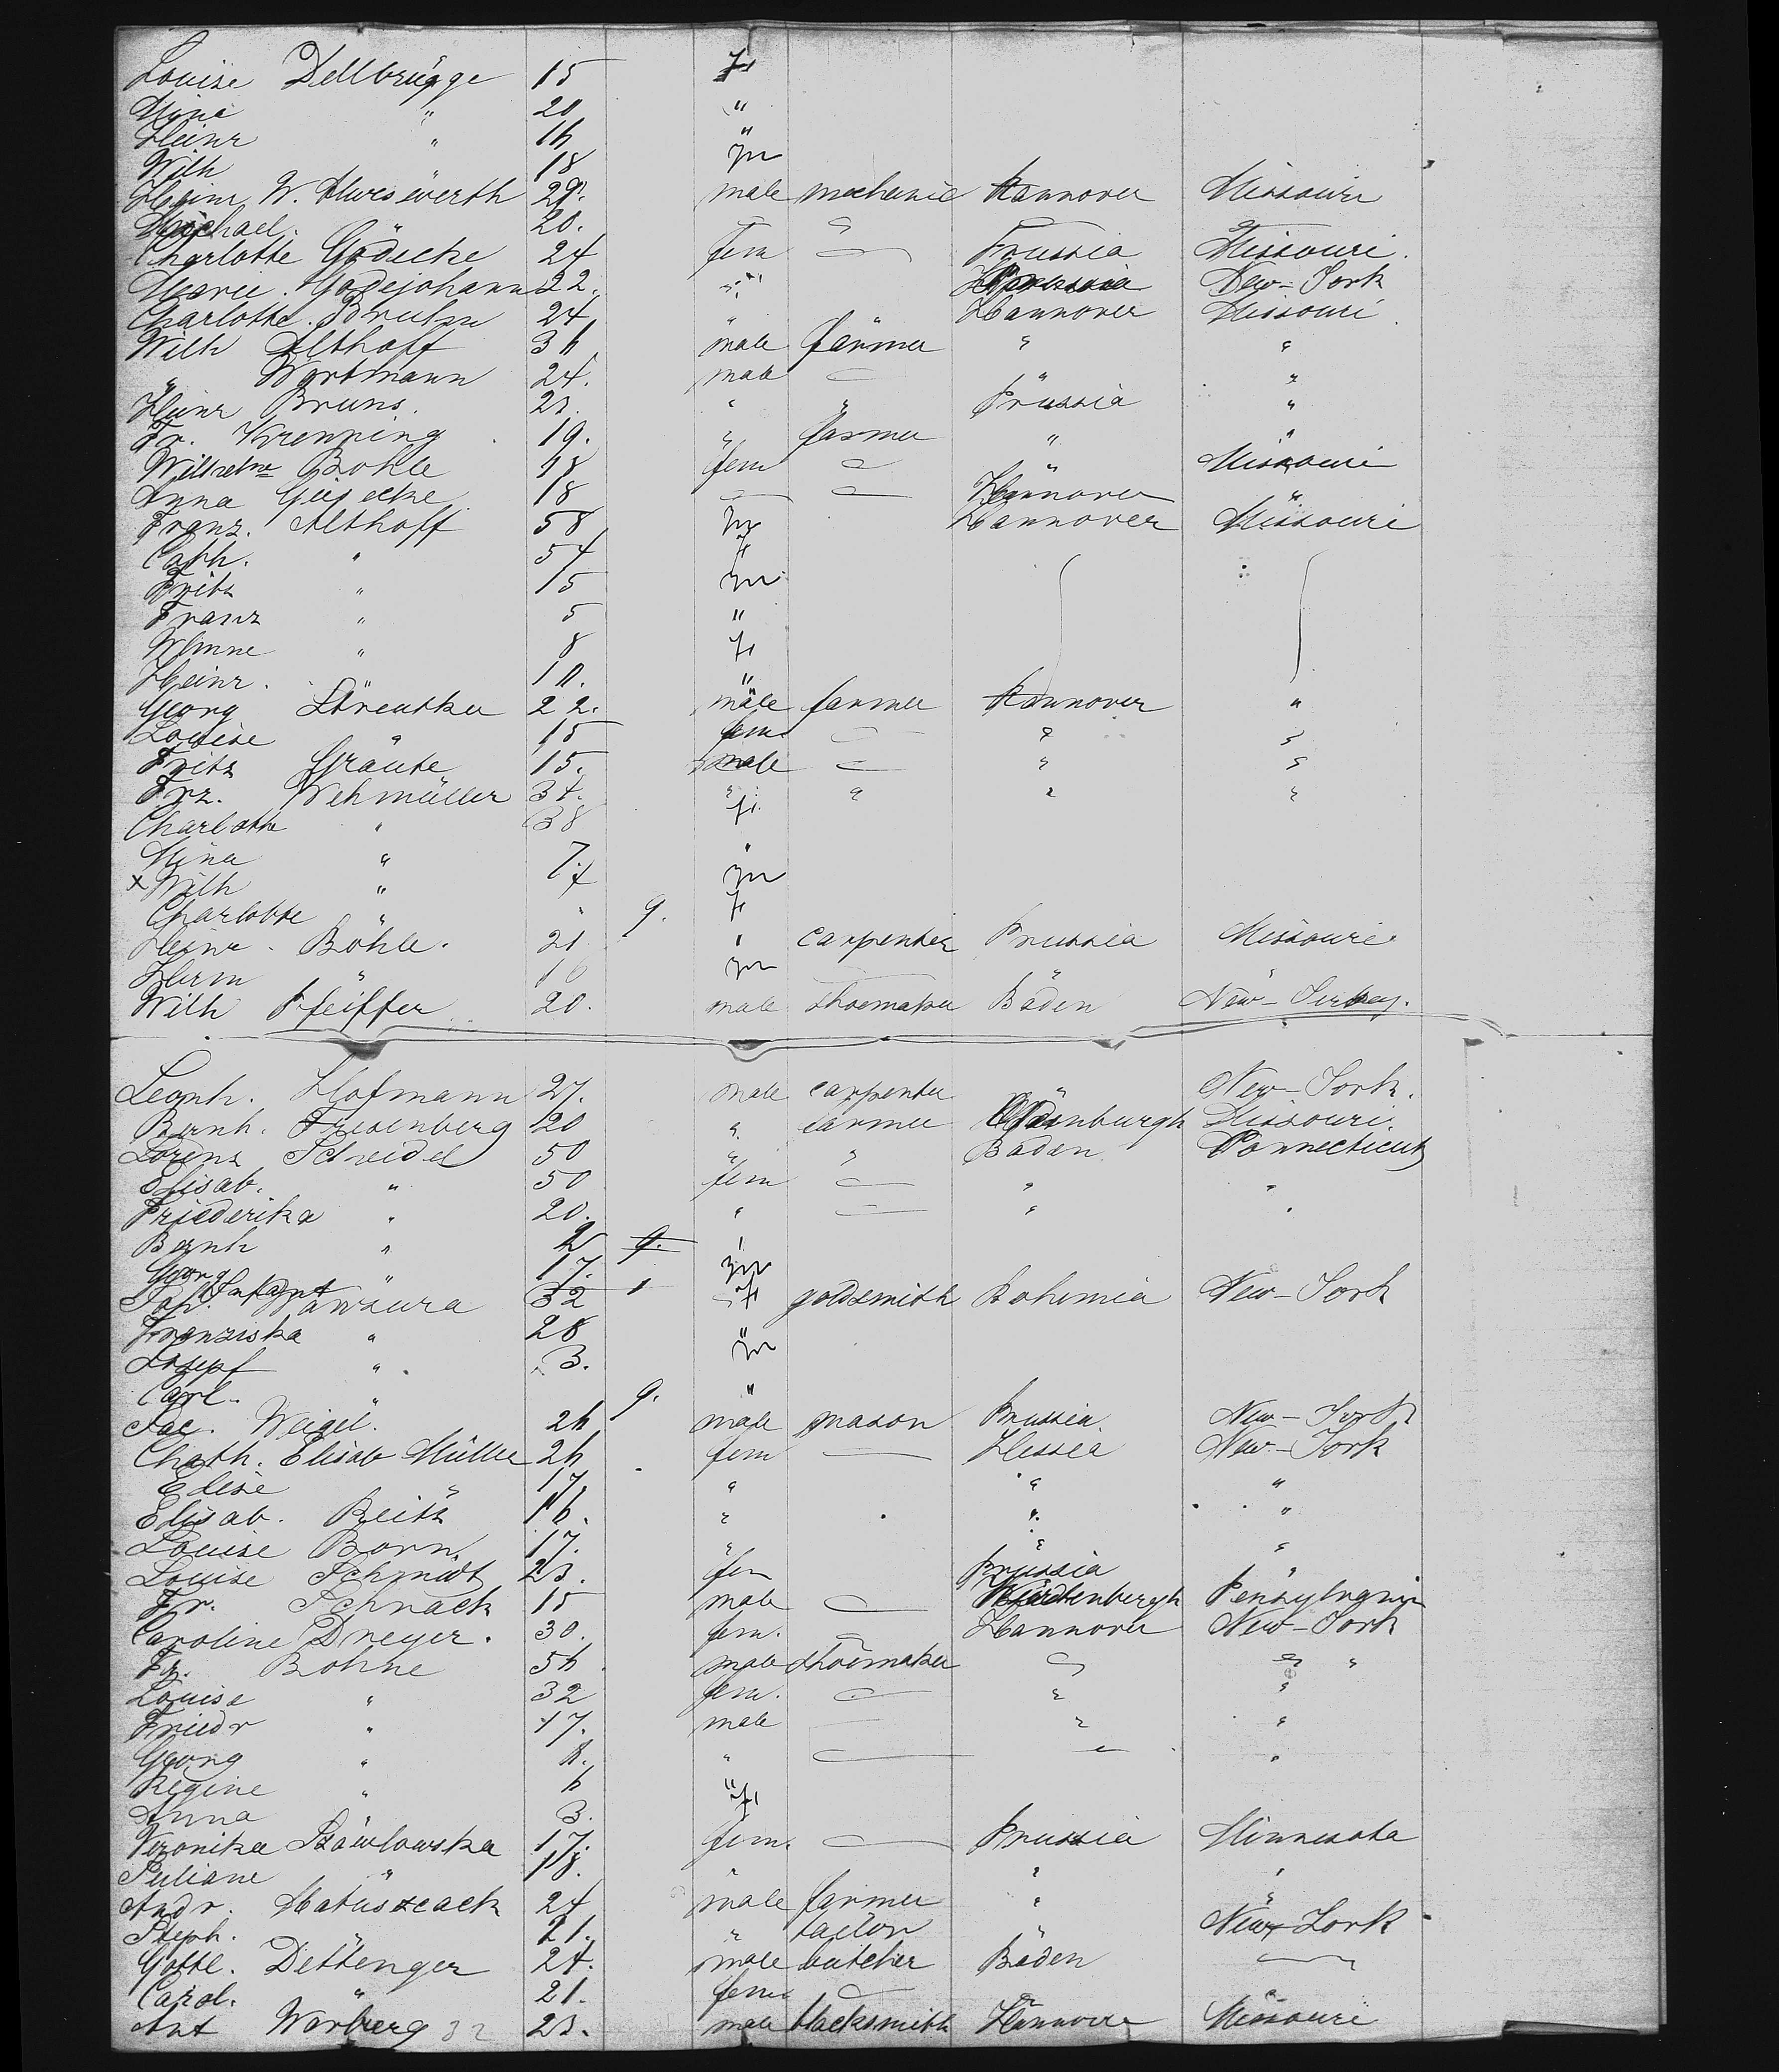 Louise Dellbrügge 15 f
Mina " 20 "
Heinr " 16 "
Wilh 18 m
Heinr W. 29. male mechanic Hannover Missouri
Michael. " 20. " "
Charlotte Gödecke 24 fem — Prussia Missouri.
Marie. Godejohann 22. " Prussia New-York
Charlotte. Bruhn 24 " Hannover Missouri
Wilh Althoff 36 male farmer " "
" Wortmann 24. male — " "
Heinr Bruns. 23. " " Prussia "
Fr. Krenning 19. " farmer " "
Wilhelme Bohle 18 fem — " Missouri
Anna Giesecke 18 — — Hannover "
Franz. Althoff 58 m Hannover Missouri
Cath. " 54 f
Fritz " 15 m
Franz " 5 "
Minne " 8 f
Heinr. " 10. "
Georg 22. male farmer Hannover "
Louise " 15 fem — " "
Fritz Gräute 15. male — " "
Frz. Wehmüller 34. " " " "
Charlotte " 38 f.
Mina " 7. "
x Wilh " 4 m
Charlotte " " 9. f
Heinr. Böhle. 21 " carpenter Prussia Missouri
Herm " 16 m — " "
Wilh Pfeiffer 20. male shoemaker Baden New-Jersey.
Leonh. Hofmann 27. male carpenter " New-York.
Bernh. Fresenberg 20 " farmer Oldenburgh Missouri.
Lorenz Scheidel 50 " " Baden Connecticut
Elisab. " 50 fem — " "
Friederika " 20. " — " "
Bernh " 9. "
Georg " 17. m
Infant "
Joh. 32 f goldsmith Bohemia New-York
Franziska " 28 "
Josepf " 3. m
Carl. " 9. "
Jac. Weigel. 26 male mason Prussia New-York
Chath. Elisab Müller 26 fem — Hessea New-York
Elise " 17. " " "
Elisab. Reitz 16. " " "
Louise Born. 17. " " "
Louise Schmidt 23. fem Prussia "
Fr. Schnack 15 male — Würtenbergh Pensylvania
Caroline Dreyer. 30. fem. — Hannover New-York
Fr. Bohne 56 male shoemaker " "
Louise " 32 fem. — " "
Friedr " 17. male — " "
Georg " 8. " — " "
Regine " 6 "
Anna 3. f
Veronika 17. fem. — Prussia Minnesota
Juliane " 18. " " "
Andr. Matuszcack 24 male farmer " "
Steph. " 21. " tailor " New-York
Gottl. Dettenger 24. male butcher Baden —
Carol. " 21. fem. — " "
Ant Warberg 32 23. male blacksmith Hannover Missouri